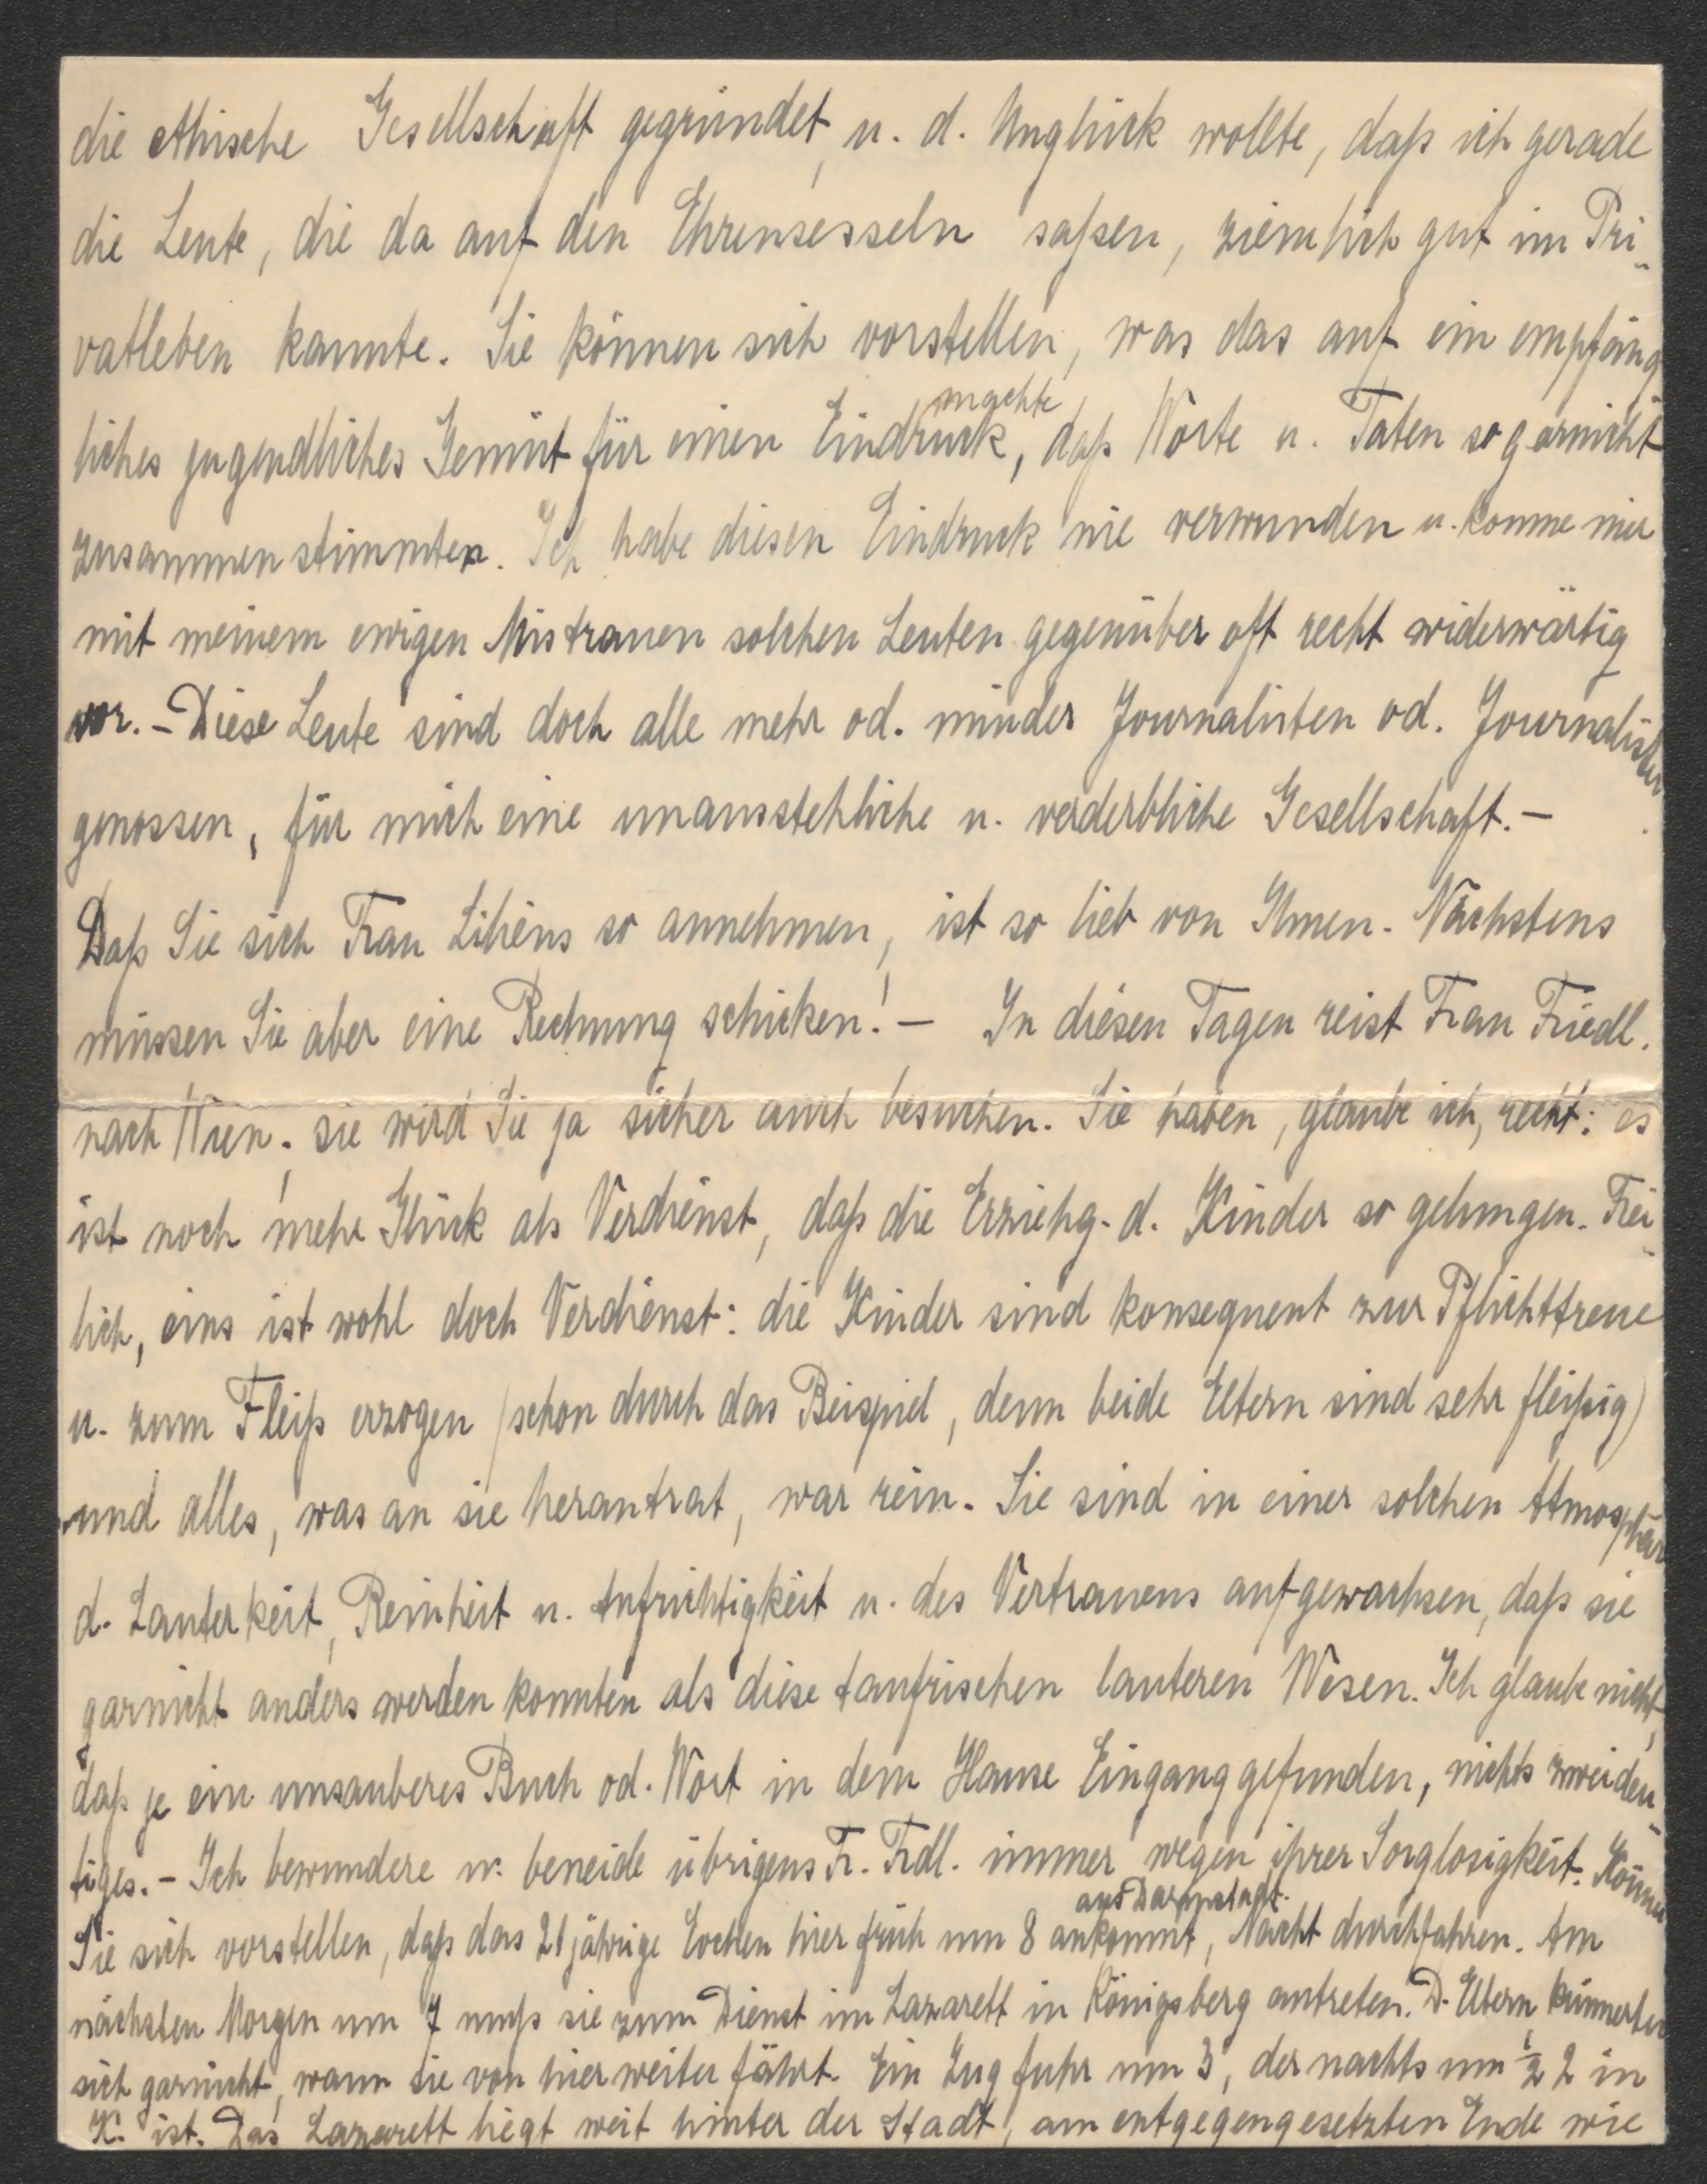 die ethische Gesellschaft gegründet, u. d. Unglück wollte, daß ich gerade
die Leute, die da auf den Ehrensesseln saßen, ziemlich gut im Pri-
vatleben kannte. Sie können sich vorstellen, was das auf ein empfäng
liches jugendliches Gemüt für einen Eindruck machte, daß Worte u. Taten so garnicht
zusammenstimmten. Ich habe diesen Eindruck nie verwunden u. komme mir
mit meinem ewigen Mistrauen solchen Leuten gegenüber oft recht widerwärtig
vor. - Diese Leute sind doch alle mehr od. minder Journalisten od. Journalisten
genossen, für mich eine unausstehliche u. verderbliche Gesellschaft. -
Daß Sie sich Frau Liliens so annehmen, ist so lieb von Ihnen. Nächstens
müssen Sie aber eine Rechnung schicken! - In diesen Tagen reist Frau Friedl.
nach Wien; sie wird Sie ja sicher auch besuchen. Sie haben, glaube ich, recht: es
ist noch mehr Glück als Verdienst, daß die Erziehg. d. Kinder so gelungen. Frei-
lich, eins ist wohl doch Verdienst: die Kinder sind konsequent zur Pflichttreue
u. zum Fleiß erzogen (schon durch das Beispiel, denn beide Eltern sind sehr fleißig)
und alles, was an sie herantrat, war rein. Sie sind in einer solchen Atmosphär
d. Lauterkeit, Reinheit u. Aufrichtigkeit u. des Vertrauens aufgewachsen, daß sie
garnicht anders werden konnten als diese taufrischen lauteren Wesen. Ich glaube nicht,
daß je ein unsauberes Buch od. Wort in dem Hause Eingang gefunden, nichts zweideu-
tiges. - Ich bewundere u. beneide übrigens Fr. Frdl. immer wegen ihrer Sorglosigkeit. Können
Sie sich vorstellen, daß das 21jährige Evchen hier früh um 8 aus Darmstadt ankommt, Nacht durchfahren. Am
nächsten Morgen um 7 muß sie zum Dienst im Lazarett in Königsberg antreten. D. Eltern kümmerten
sich garnicht, wann sie von hier weiter fährt. Ein Zug fuhr um 3, der nachts um ½ 2 in
K. ist. Das Lazarett liegt weit hinter der Stadt, am entgegengesetzten Ende wie